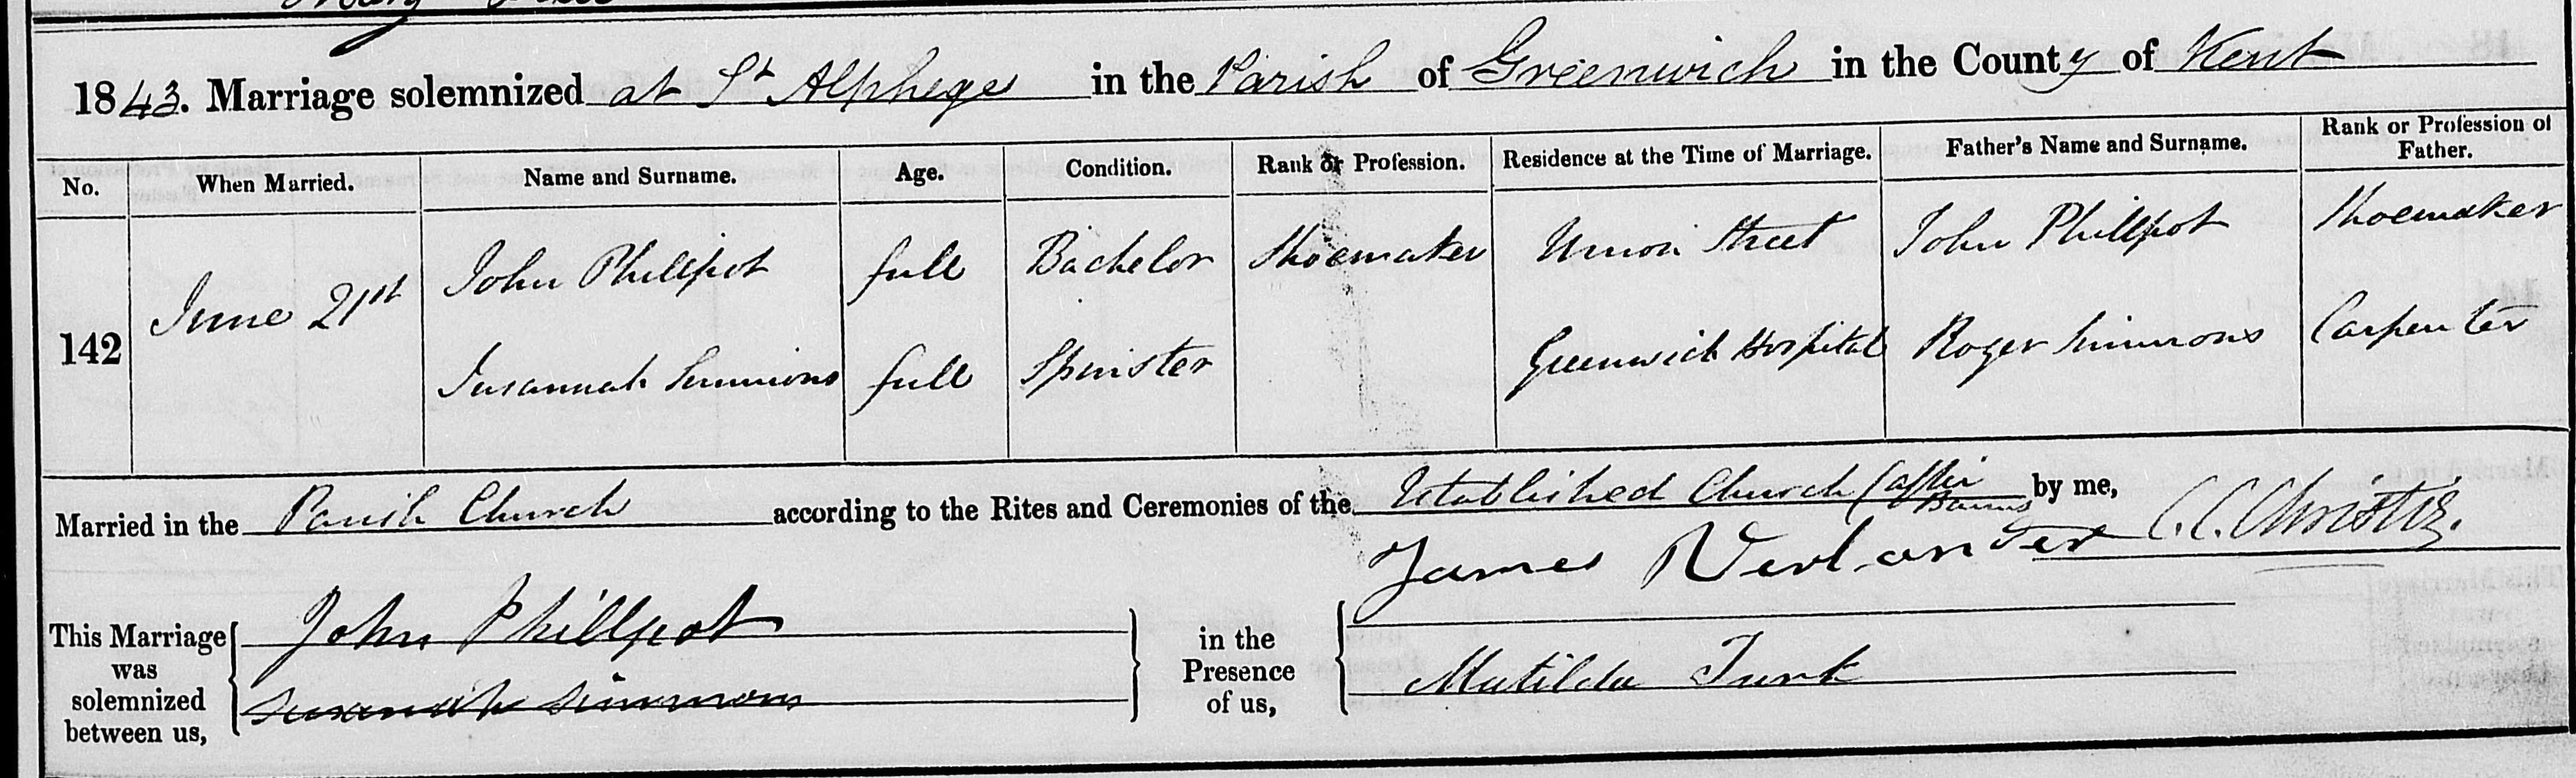 1843. Marriage solemnized at St Alphege in the Parish of Greenwich in the County of Kent
No. When Married. Name and Surname. Age. Condition. Rank or Profession. Residence at the Time of Marriage. Father's Name and Surname. Rank or Profession of Father.
142 June 21st John Phillpot full Bachelor Shoemaker Union Street John Phillpot Shoemaker
Susannah Simmons full Spinster Greenwich Hospital Roger Simmons Carpenter
Married in the Parish Church according to the Rites and Ceremonies of the Established Church (after Banns by me, C. C. Christie.
This Marriage was solemnized between us, John Phillpot in the Presence of us, James Verlander
Susanah Simmons Matilda Turk